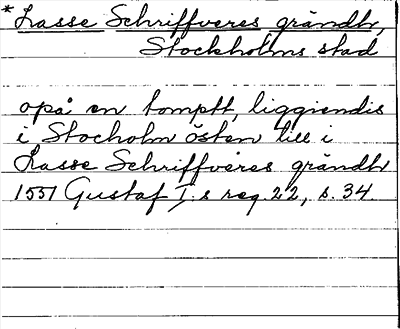 * Lasse Schriffveres grändh,
Stockholms stad
opå en tomptt, liggiendis
i Stocholm östen till i
Lasse Schriffveres grändh
1551 Gustaf I:s reg. 22, s. 34.